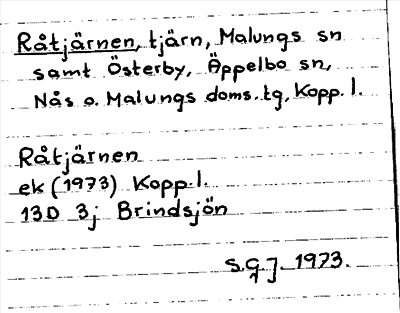 Råtjärnen, tjärn, Malungs sn
samt Österby, Äppelbo sn,
Nås o. Malungs doms. tg, Kopp. l.
Råtjärnen
ek (1973) Kopp. l.
13D 3j Brindsjön
S.G.J. 1973.